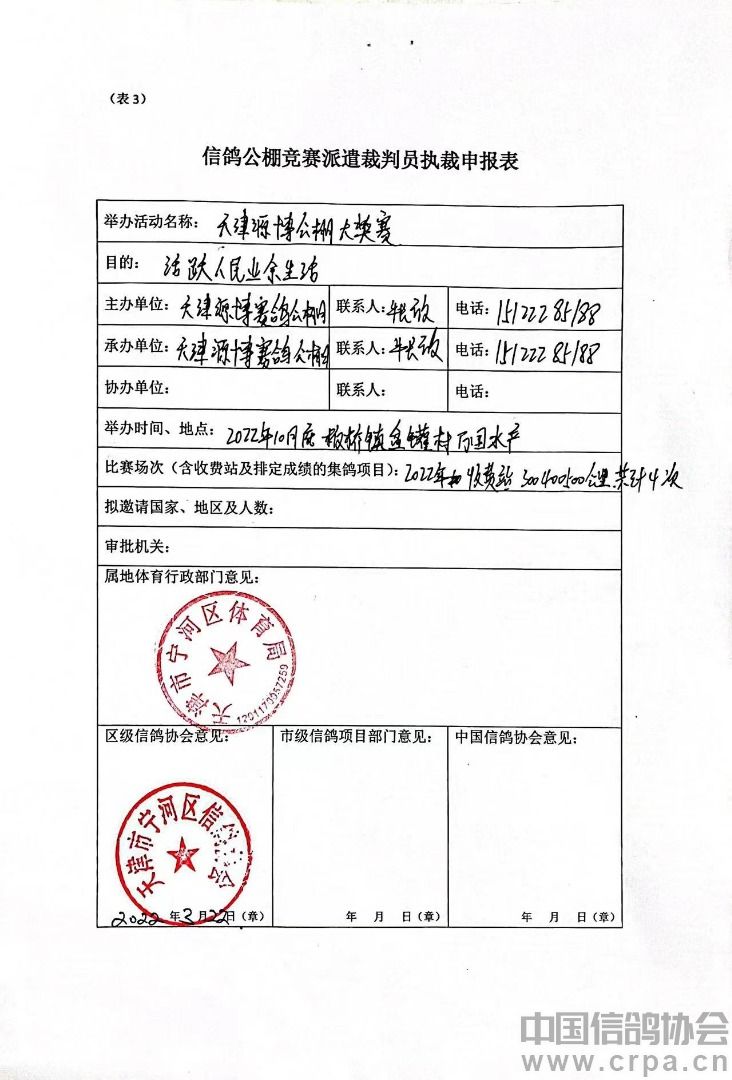 （表3）
信鸽公棚竞赛派遣裁判员执裁申报表
举办活动名称：天津源博公棚大奖赛
目的：活跃人民业余生活
主办单位：天津源博赛鸽公棚 联系人： 电话：15122285188
承办单位：天津源博赛鸽公棚 联系人： 电话：15122285188
协办单位： 联系人： 电话：
举办时间、地点：2022年10月底 板桥镇盆罐村万国水产
比赛场次（含收费站及排定成绩的集鸽项目）：2022年 收费站 300400500公里 共计4次
拟邀请国家、地区及人数：
审批机关：
属地体育行政部门意见：
天津市宁河区体育局
区级信鸽协会意见： 市级信鸽项目部门意见： 中国信鸽协会意见：
天津市宁河区信鸽
2022年3月22日（章） 年 月 日（章） 年 月 日（章）
中国信鸽协会
www.crpa.cn